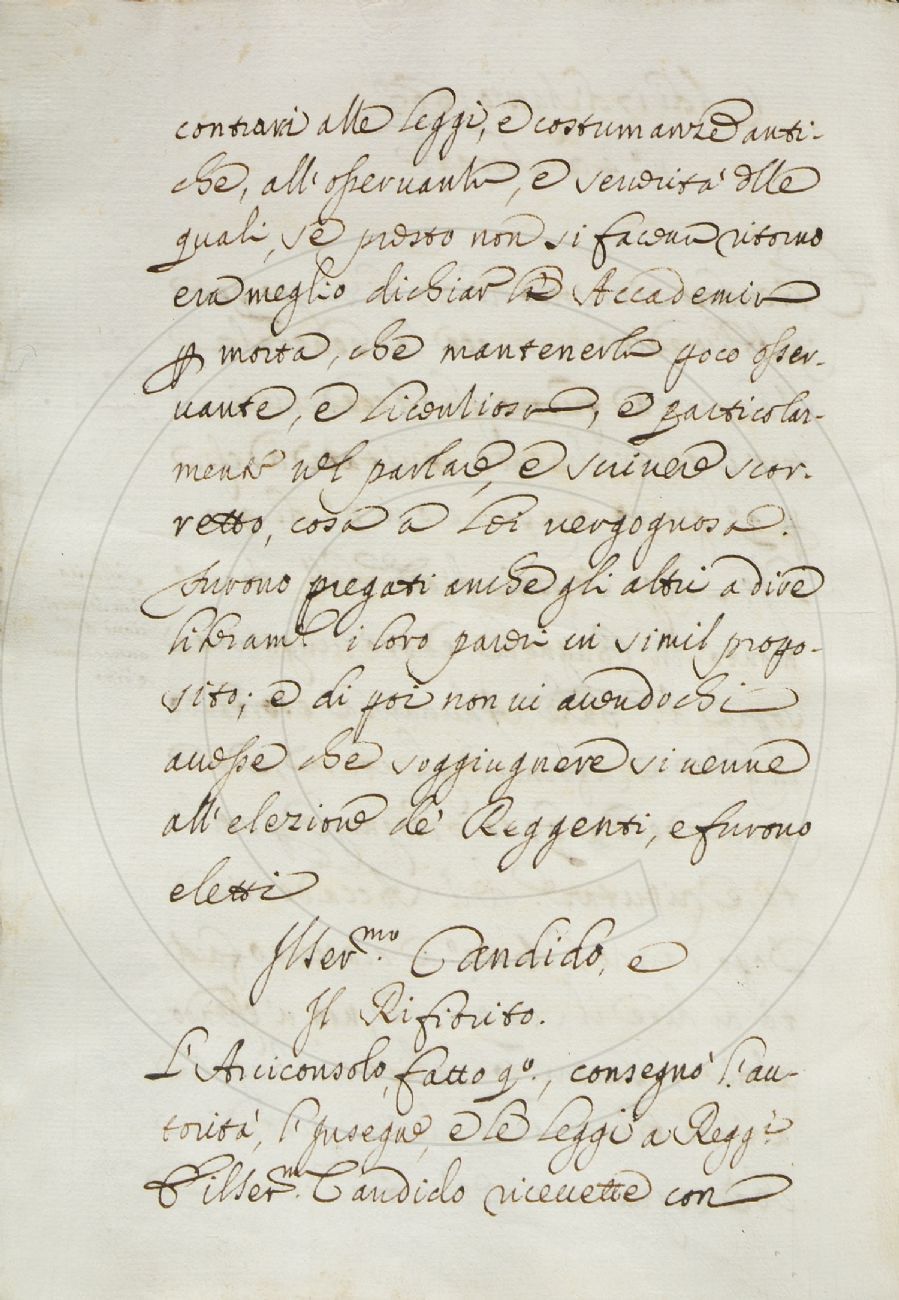 contrari alle leggi, e costumanze anti-
che, all'osservanza, e severità delle
quali, se presto non si faceva ritorno
era meglio dichiar la Accademia
p morta, che mantenerla poco osser-
vante, e licentiosa, e particolar-
mente nel parlare, e scrivere scor-
retto, cosa a Lei vergognosa.
Furono pregati anche gli altri a dire
liberam.e i loro pareri in simil propo-
sito; e di poi non vi avendo chi
avesse che soggiugnere si venne
all'elezione de' Reggenti, e furono
eletti
Il Ser.mo Candido, e
Il Rifiorito.
L'Arciconsolo, fatto qo., consegnò l'au-
torità, l'Insegne, e le leggi a Regg.i
E il Ser.m Candido ricevette con